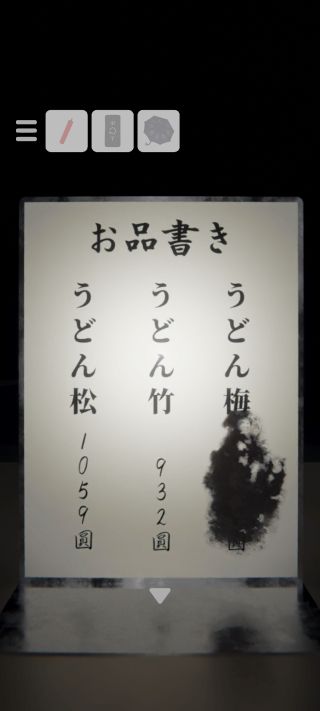 お品書き
うどん梅
圓
うどん竹
932圓
うどん松
1059圓